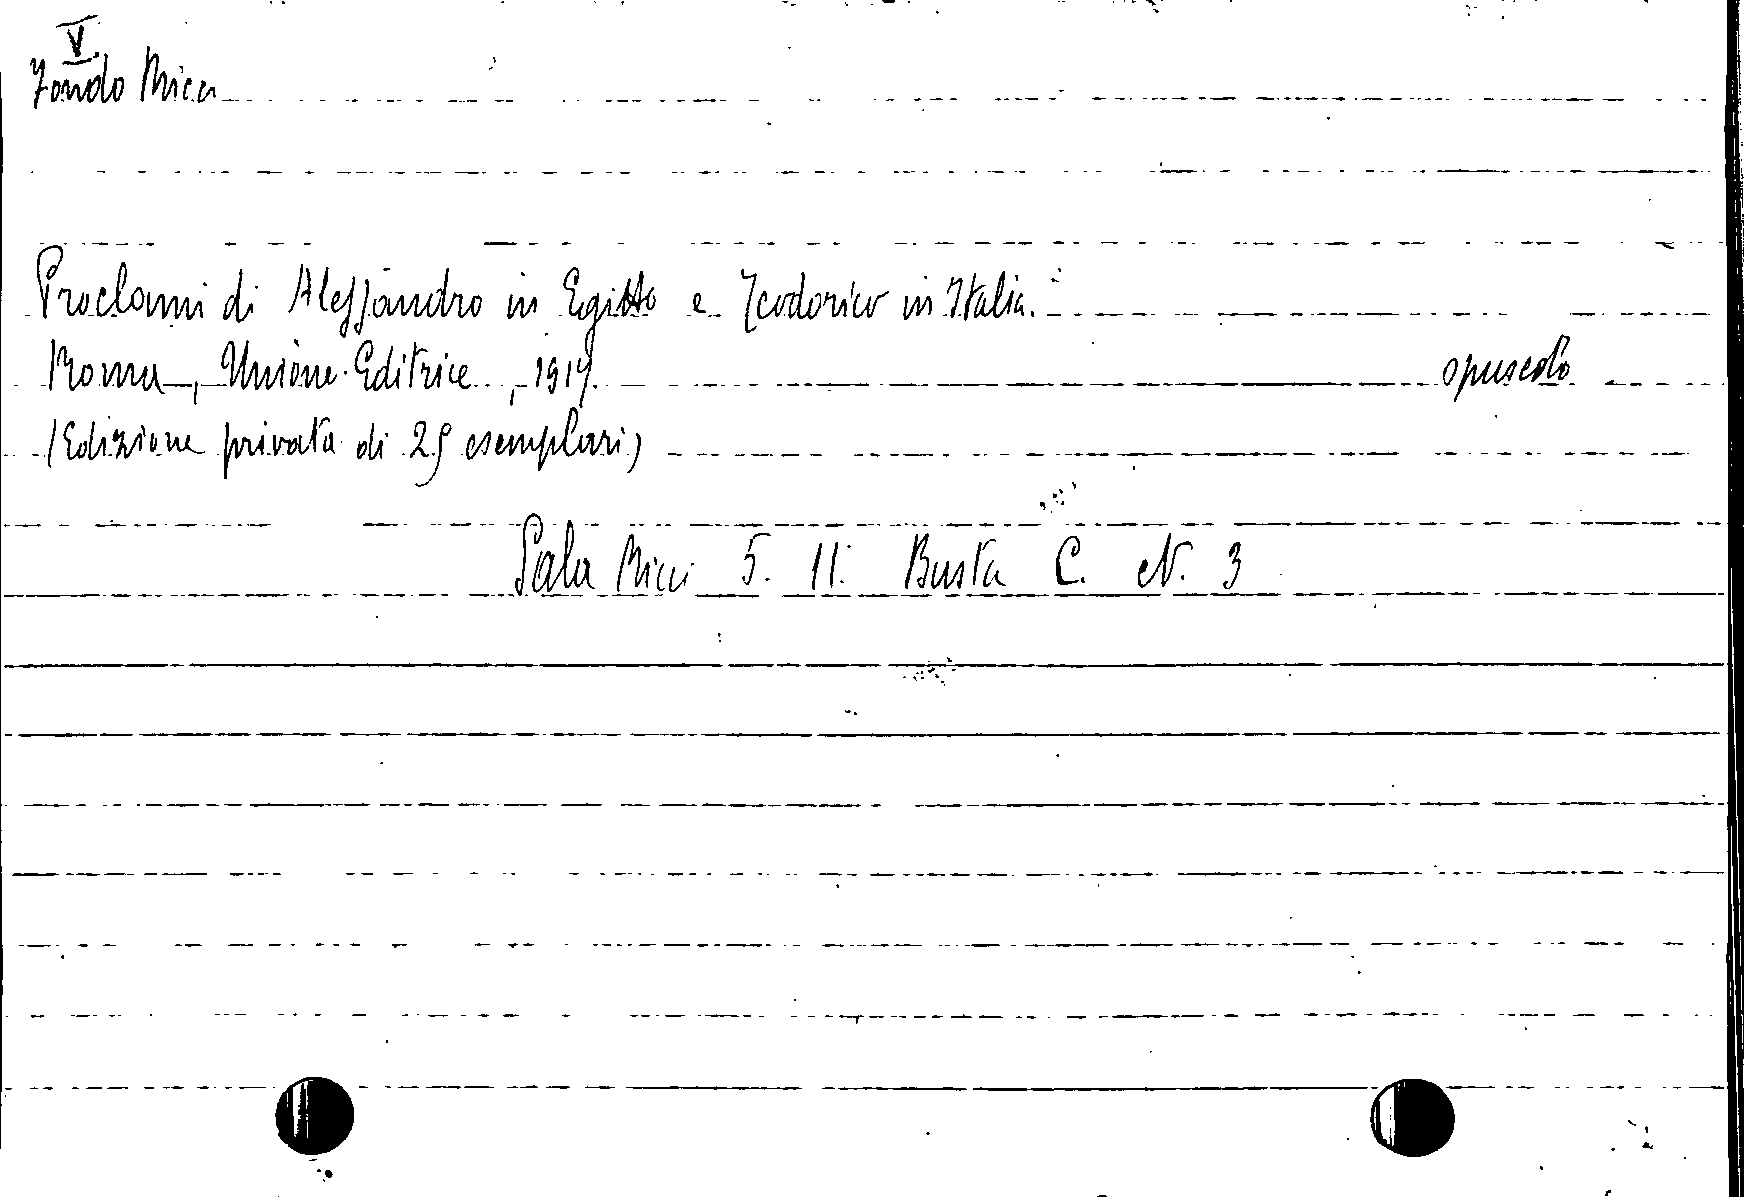 V.
Fondo Ricci
Proclami di Alessandro in Egitto e Teodorico in Italia.
Roma, Unione Editrice, 1917.
opuscolo
(Edizione privata di 25 esemplari)
Sala Ricci 5. 11. Busta C. N. 3